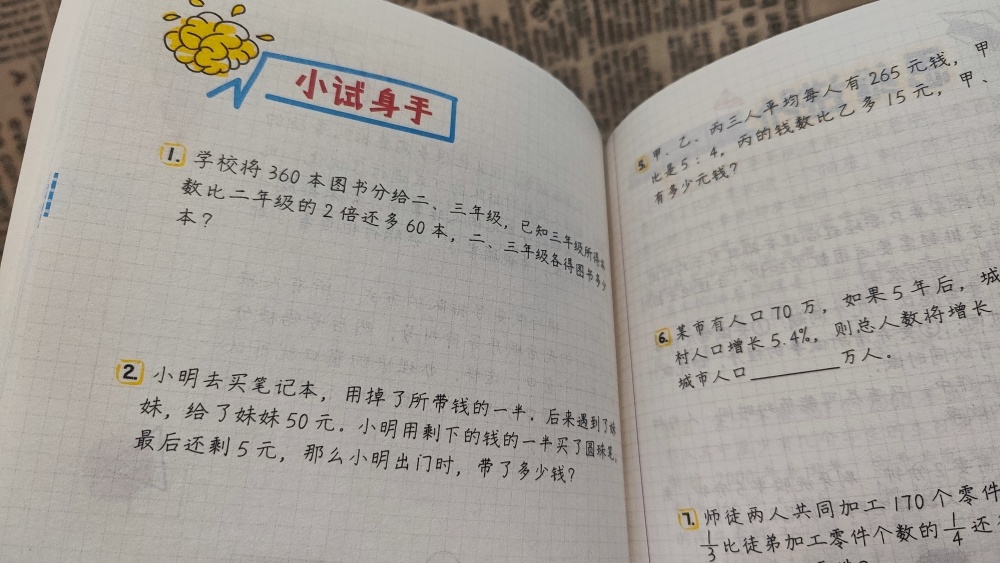 小试身手
1. 学校将360本图书分给二、三年级，已知三年级所得本
数比二年级的2倍还多60本，二、三年级各得图书多少
本？
2. 小明去买笔记本，用掉了所带钱的一半．后来遇到了妹
妹，给了妹妹50元。小明用剩下的钱的一半买了圆珠笔，
最后还剩5元，那么小明出门时，带了多少钱？
5. 甲、乙、丙三人平均每人有265元钱，甲
比是5：4，丙的钱数比乙多15元，甲、
有多少元钱？
6. 某市有人口70万，如果5年后，城
村人口增长5.4%，则总人数将增长
城市人口______万人。
7. 师徒两人共同加工170个零件
1/3比徒弟加工零件个数的1/4还